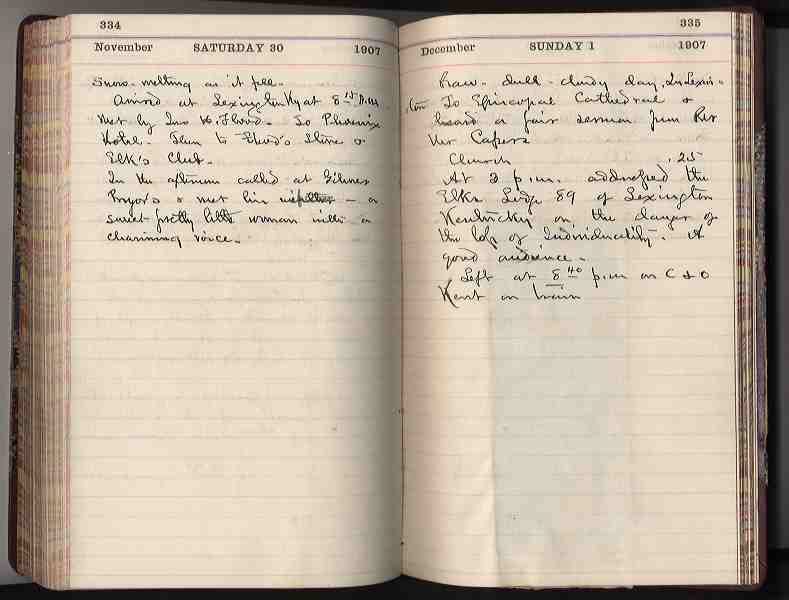 334
November SATURDAY 30 1907
Snow - melting as it fell -
Arrived at Lexington Ky at 8 15 P.M
Met by Jno H. Flood. To Phoenix
Hotel. Then to Flood's Store &
Elk's Club.
In the afternoon called at
Pryor's & met his — a
sweet pretty little woman with a
charming voice.
335
December SUNDAY 1 1907
Raw - dull - cloudy day. In Lexin-
ton To Episcopal Cathedral &
heard a fair sermon from Rev
Mr Capers
Church .25
At 2 p.m. addressed the
Elks Lodge 89 of Lexington
Kentucky on the danger of
the loss of Individuality. A
good audience.
Left at 8 40 p.m on C & O
Kent on train